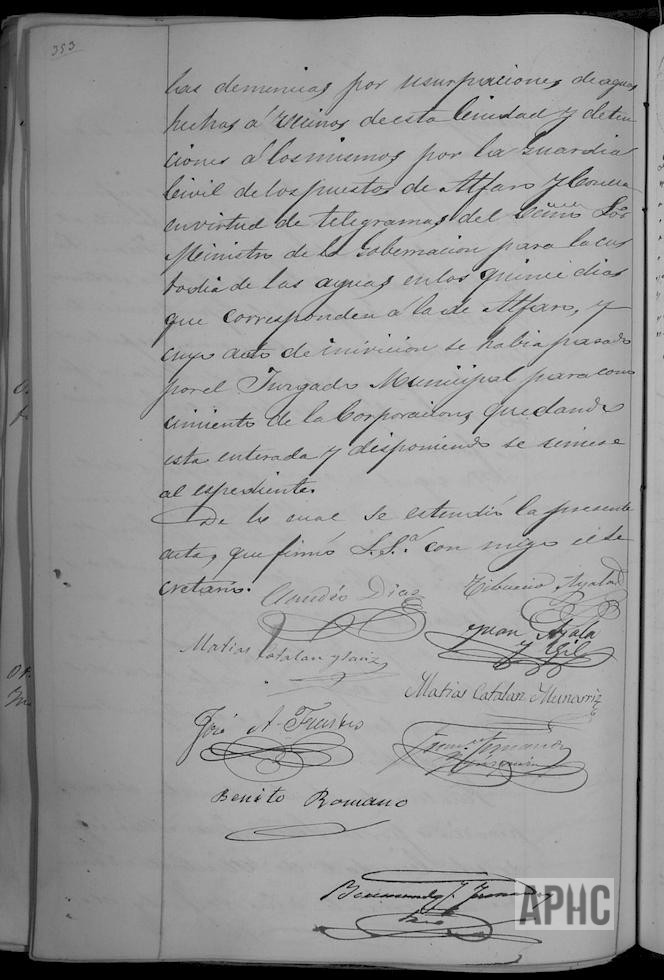 353
las denuncias por usurpaciones de aguas
hechas á vecinos de esta Ciudad y deten
ciones á los mismos por la Guardia
Civil de los puestos de Alfaro y Corella
en virtud de telegramas del Escmo Sor
Ministro de la Gobernacion para la cus
todia de las aguas en los quince dias
que corresponden á la de Alfaro, y
cuyo auto de inivicion se habia pasado
por el Jurgado Municipal para cono
cimiento de la Corporacion, quedando
esta enterada y disponiendo se uniese
al espediente.
De lo cual se estendió la presente
acta, que firmó S.S.ª con migo el Se
cretario.
Claudio Diaz
Tiburcio Ayala
Juan Ayala
y Gil
Matias Catalan y Sainz
Matias Catalan Munarriz
José A. Frustro
Benito Romano
APHC